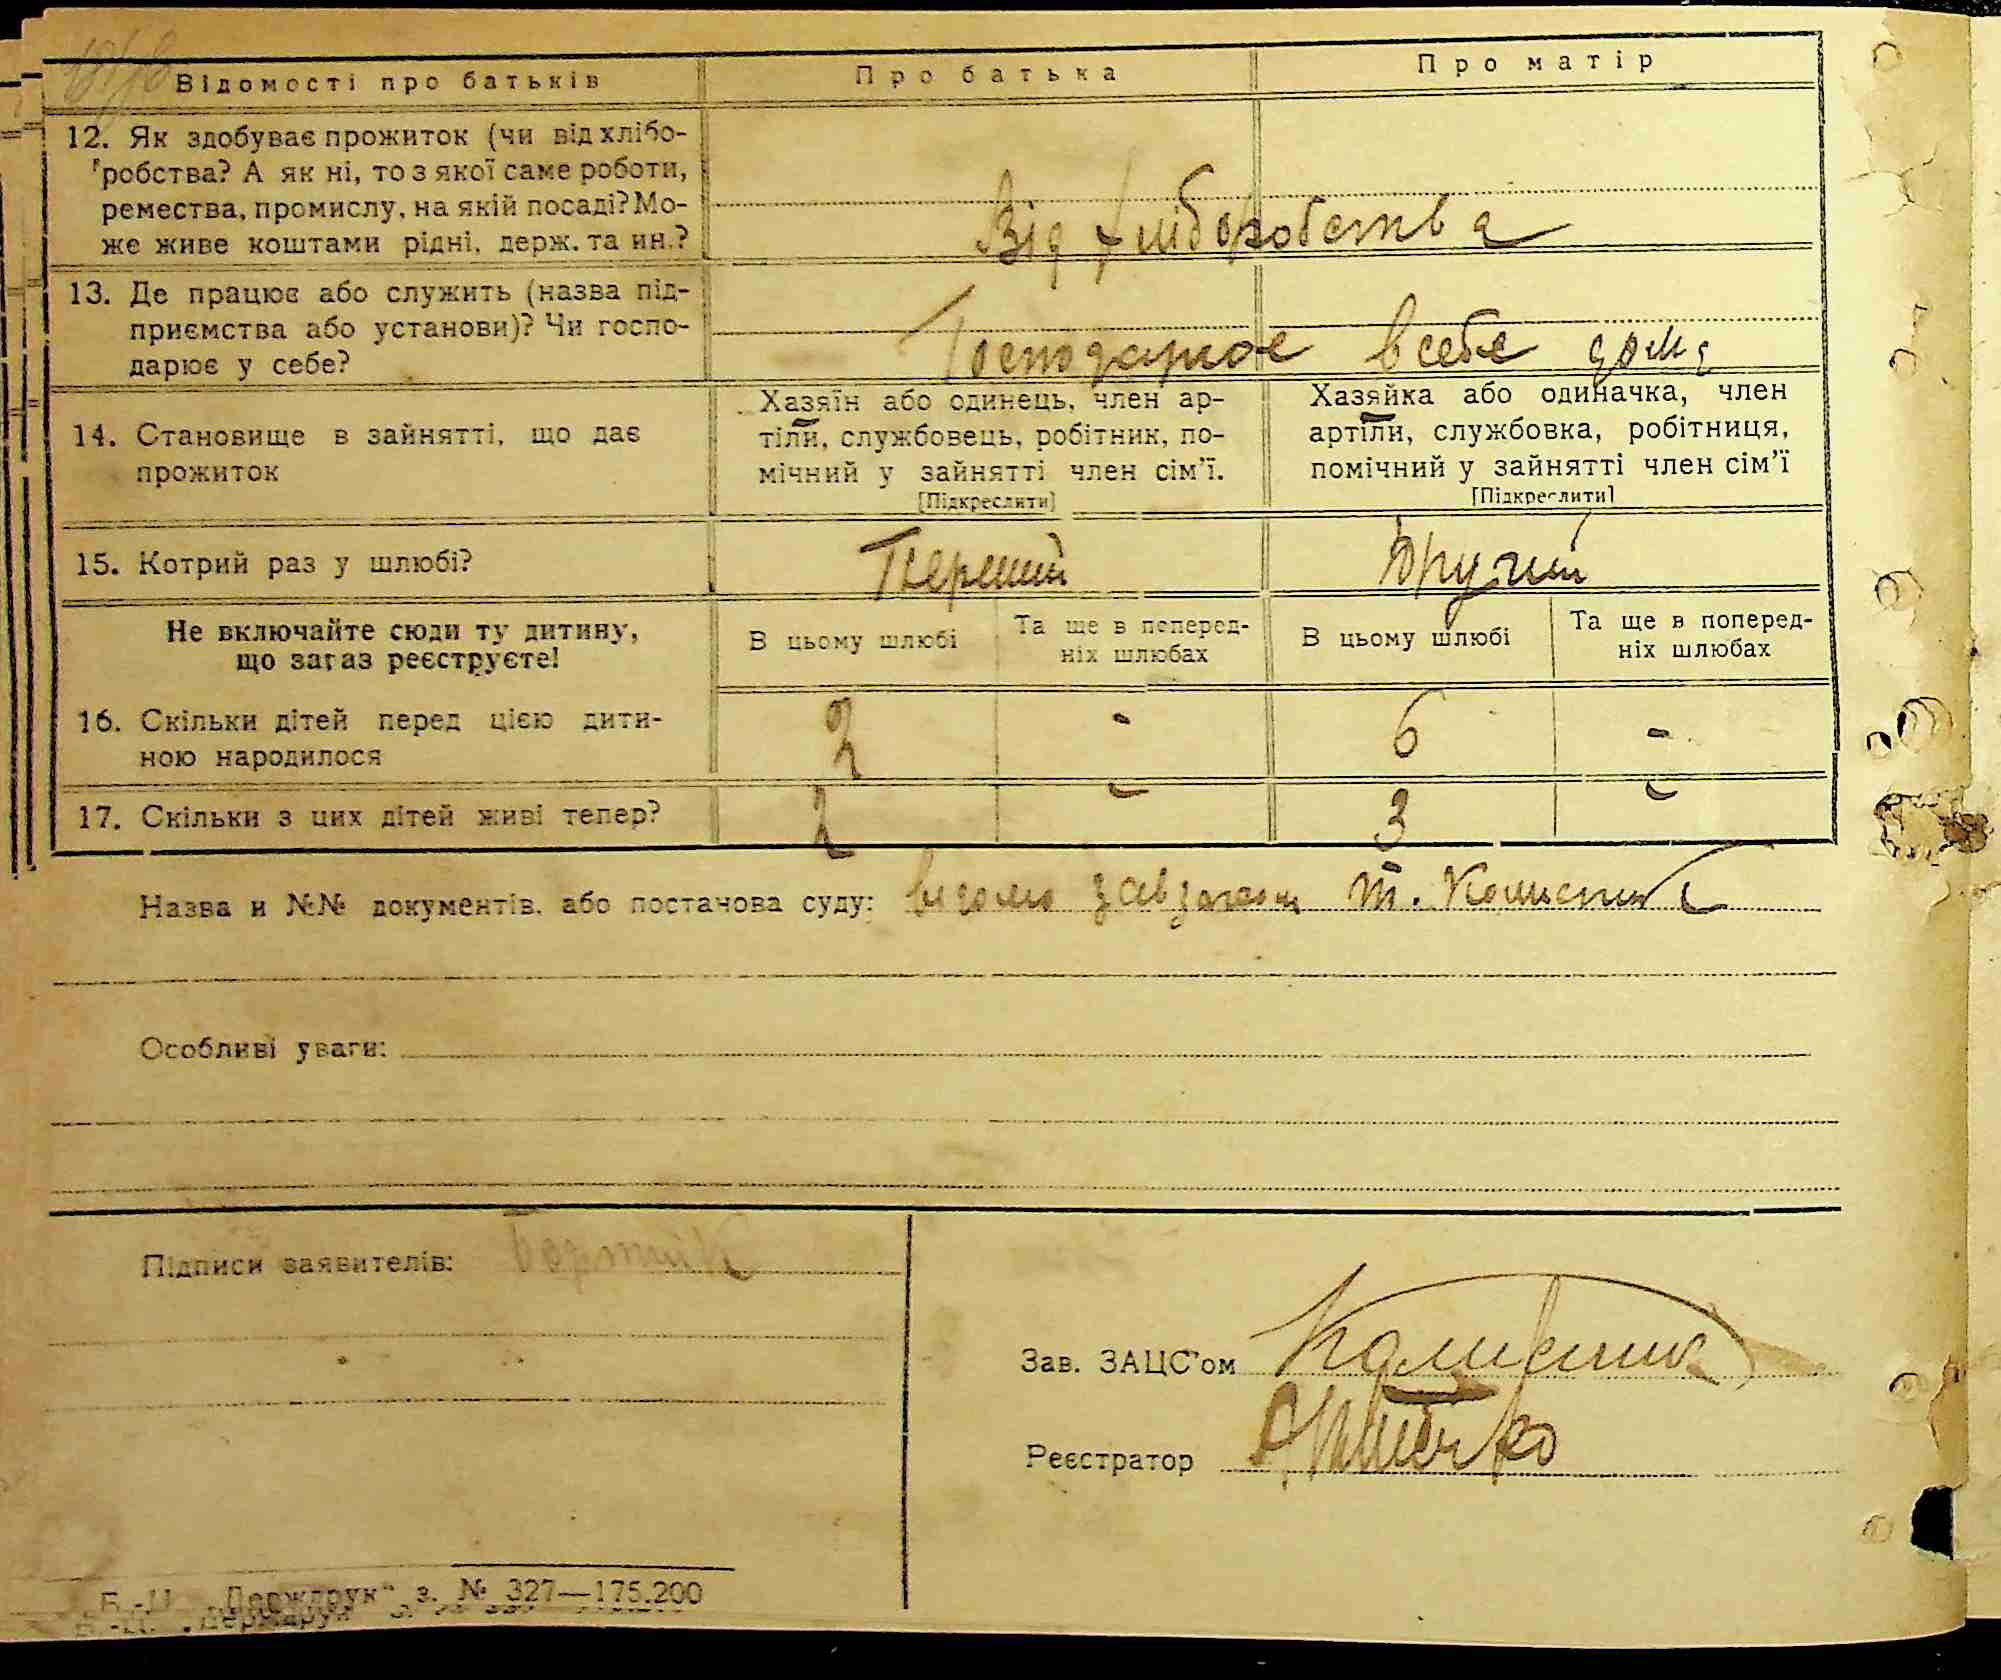 Відомості про батьків
Про батька
Про матір
12. Як здобуває прожиток (чи від хлібо-
робства? А як ні, то з якої саме роботи,
ремества, промислу, на якій посаді? Мо-
же живе коштами рідні, держ. та ин.?
Від хліборобства
13. Де працює або служить (назва під-
приємства або установи)? Чи госпо-
дарює у себе?
Господарює в себе дома
14. Становище в зайнятті, що дає
прожиток
Хазяїн або одинець, член ар-
тіли, службовець, робітник, по-
мічний у зайнятті член сім'ї.
[Підкреслити]
Хазяйка або одиначка, член
артіли, службовка, робітниця,
помічний у зайнятті член сім'ї
[Підкреслити]
15. Котрий раз у шлюбі?
Перший
Другий
Не включайте сюди ту дитину,
що зараз реєструєте!
В цьому шлюбі
Та ще в поперед-
ніх шлюбах
В цьому шлюбі
Та ще в поперед-
ніх шлюбах
16. Скільки дітей перед цією дити-
ною народилося
2 - 6 -
17. Скільки з цих дітей живі тепер?
2 - 3 -
Назва и №№ документів, або постанова суду:
Особливі уваги:
Підписи заявителів:
Зав. ЗАЦС'ом
Реєстратор
Б.-Ц. „Держдрук" з. № 327—175.200